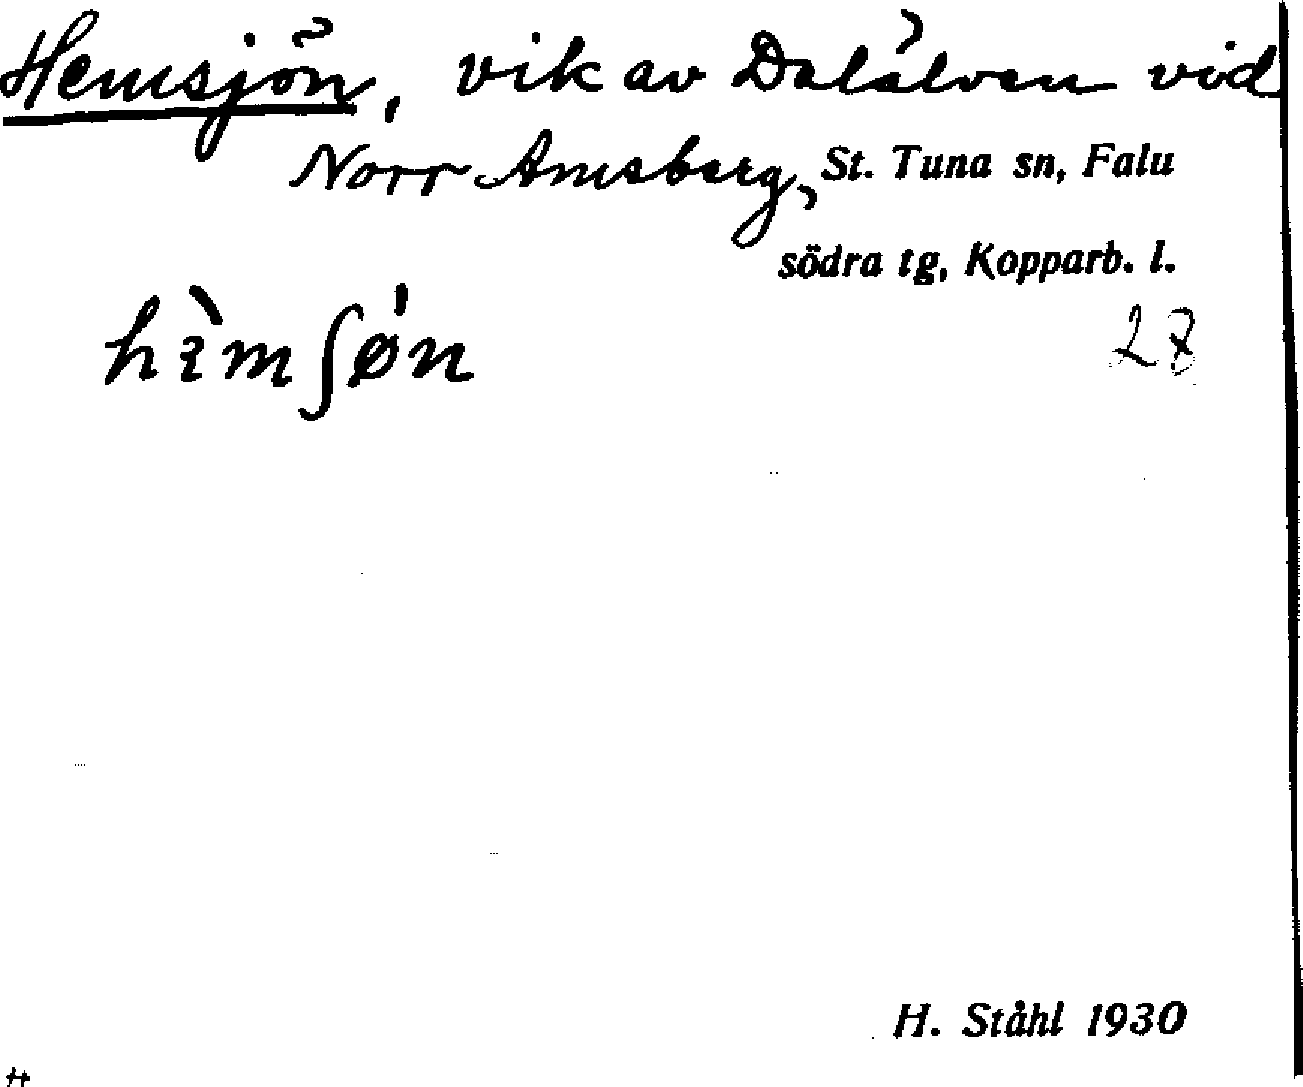 Hemsjön, vik av Dalälven vid
Norr Amsberg, St. Tuna sn, Falu
södra tg, Kopparb. l.
28
H. Ståhl 1930